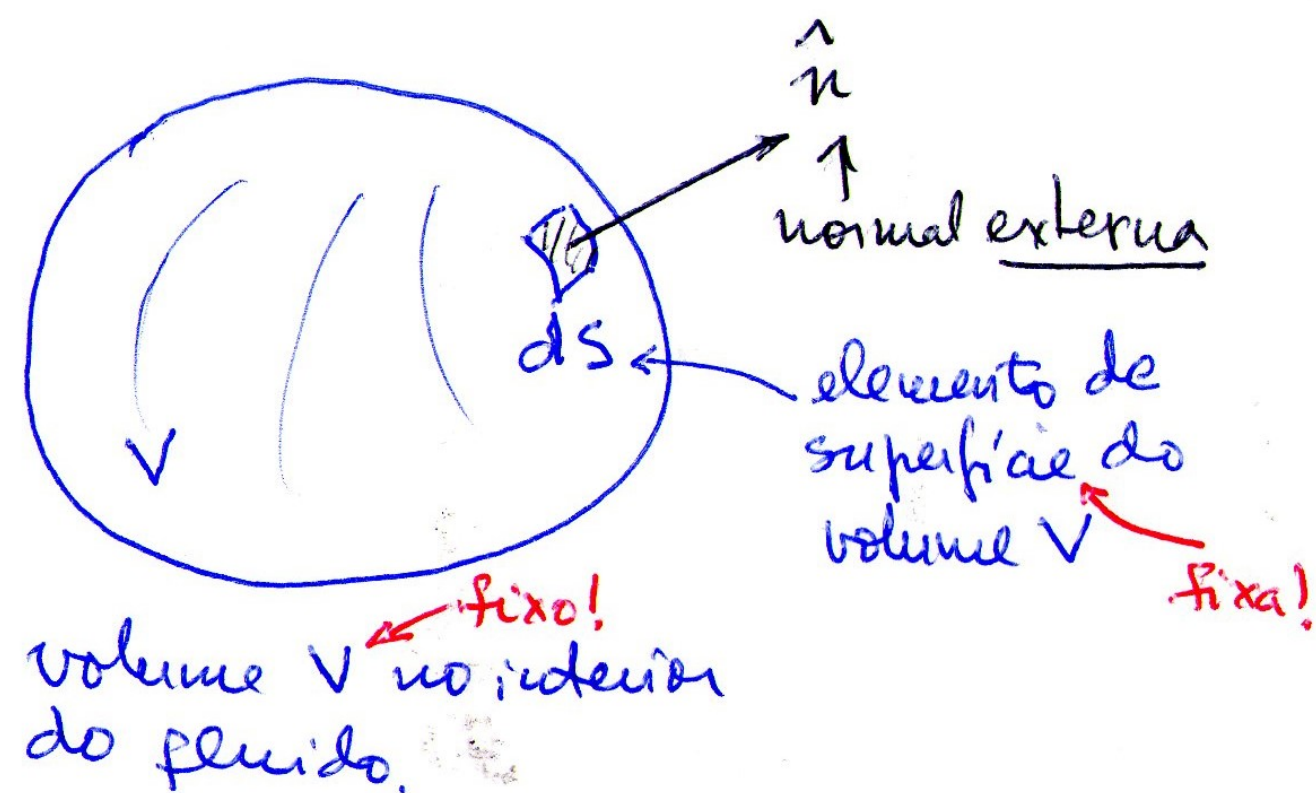 n̂
normal externa
dS
elemento de
superfície do
volume V
fixa!
V
fixo!
volume V no interior
do fluido.